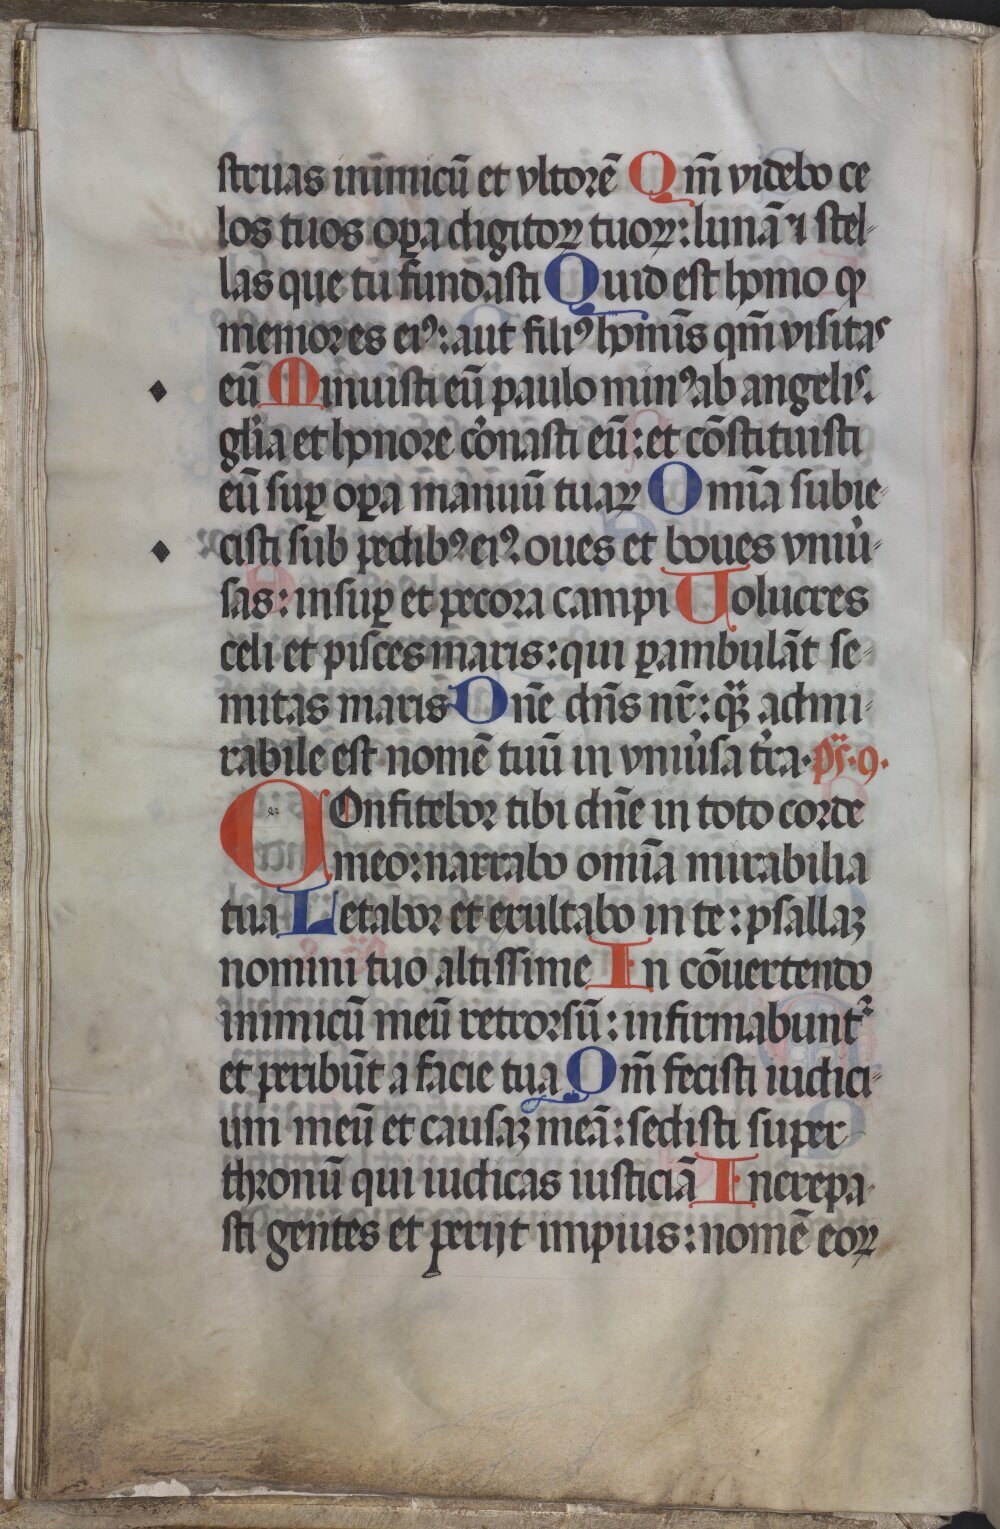 struas inimicū et vltorē Qm̄ videbo ce
los tuos oꝑa digitoꝝ tuoꝝ: lunā ⁊ stel-
las que tu fundasti Quid est homo ꝙ
memor es eiꝰ: aut filiꝰ homīs qm̄ visitas
eū Minuisti eū paulo minꝰ ab angelis.
glīa et honore co᷒nasti eū: et cōstituisti
eū suꝑ oꝑa manuū tuaꝝ Om̄ia subie-
cisti sub pedibꝰ eiꝰ. oues et boues vniu᷒-
sas: insuꝑ et pecora campi Uolucres
celi et pisces maris: qui ꝑambulāt se-
mitas maris Dn̄e dn̄s nr̄: qꝫ admi-
rabile est nomē tuū in vniu᷒sa t᷒ra. ps. 9.
COnfitebor tibi dn̄e in toto corde
meo: narrabo om̄ia mirabilia
tua Letabor et exultabo in te: psallaꝫ
nomini tuo altissime In cōuertendo
inimicū meū retrorsū: infirmabunt᷑
et peribūt a facie tua Qm̄ fecisti iudici-
um meū et causaꝫ meā: sedisti super
thronū qui iudicas iusticiā Increpa-
sti gentes et perijt impius: nomē eoꝝ